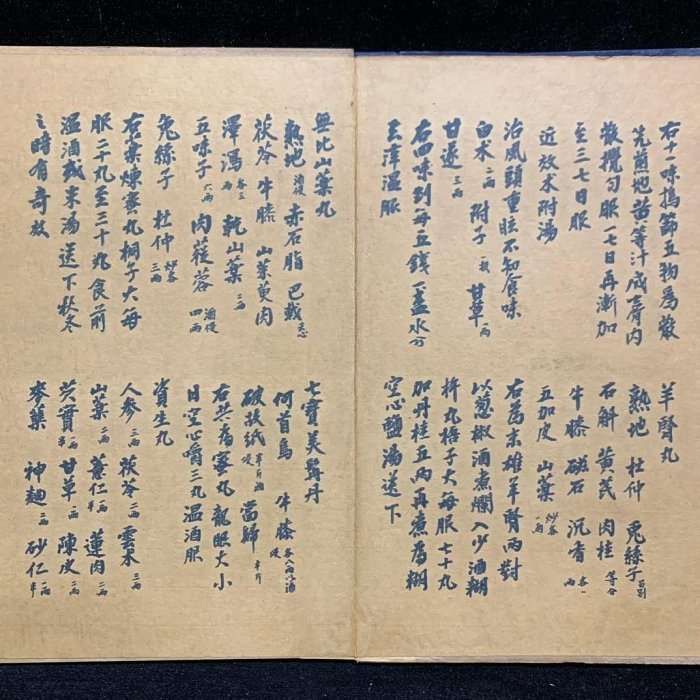 右十一味搗篩五物為散
先煎地黃等汁成膏內
散攪勻服一七日再漸加
至三七日服
近效朮附湯
治風頭重眩不知食味
白朮 二兩 附子 甘草 一兩
甘遂 三兩
右四味剉每五錢 盞水
溫服
羊腎丸
熟地 杜仲 兔絲子 另
石斛 黃芪 肉桂 等分
牛膝 磁石 沉香 各一兩
五加皮 山藥 炒各一兩
右為末雄羊腎兩對
以蔥椒酒煮爛入少酒糊
杵丸梧子大每服七十丸
加丹桂五兩再煮為糊
空心鹽湯送下
無比山藥丸
熟地 酒浸 赤石脂 巴戟 去心
茯苓 牛膝 山茱萸肉
澤瀉 各三兩 乾山藥 二兩
五味子 六兩 肉蓯蓉 酒浸四兩
兔絲子 杜仲 炒各三兩
右藥煉蜜丸桐子大每
服二十丸至三十丸食前
溫酒或米湯送下秋冬
之時有奇效
七寶美髯丹
何首烏 牛膝 各八兩以酒浸
破故紙 半斤酒浸 當歸 半斤
右共為蜜丸龍眼大小
日空心嚼三丸溫酒服
資生丸
人參 三兩 茯苓 二兩 雲朮 三兩
山藥 二兩 薏仁 兩半 蓮肉 二兩
芡實 兩半 甘草 一兩 陳皮 二兩
麥蘗 神麯 二兩 砂仁 兩半